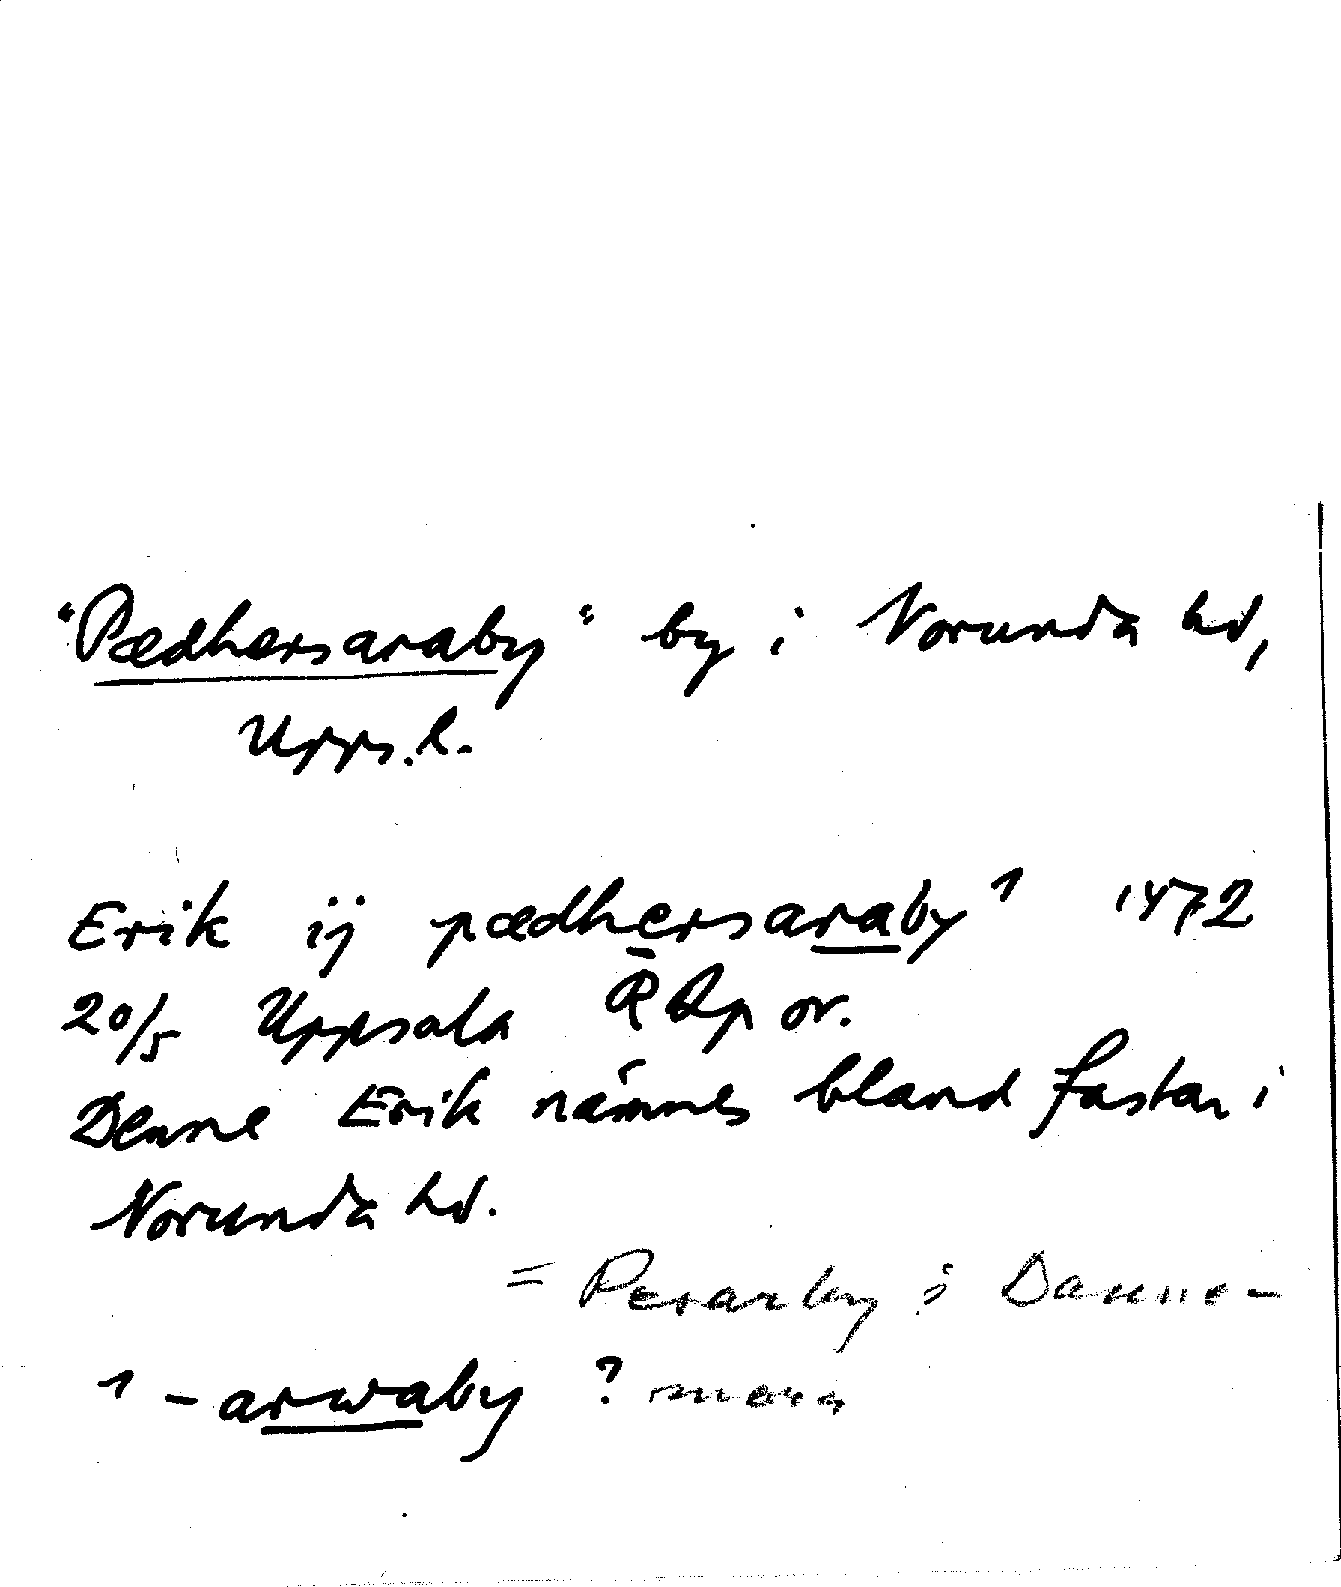 "Pædhersaraby" by i Norunda hd,
Upps.l.
Erik ij pædhersaraby¹ 1472
20/5 Uppsala RAp or.
Denne Erik nämnes bland fastar i
Norunda hd.
= Perarby i Danne-
mora
¹ -arwaby ?